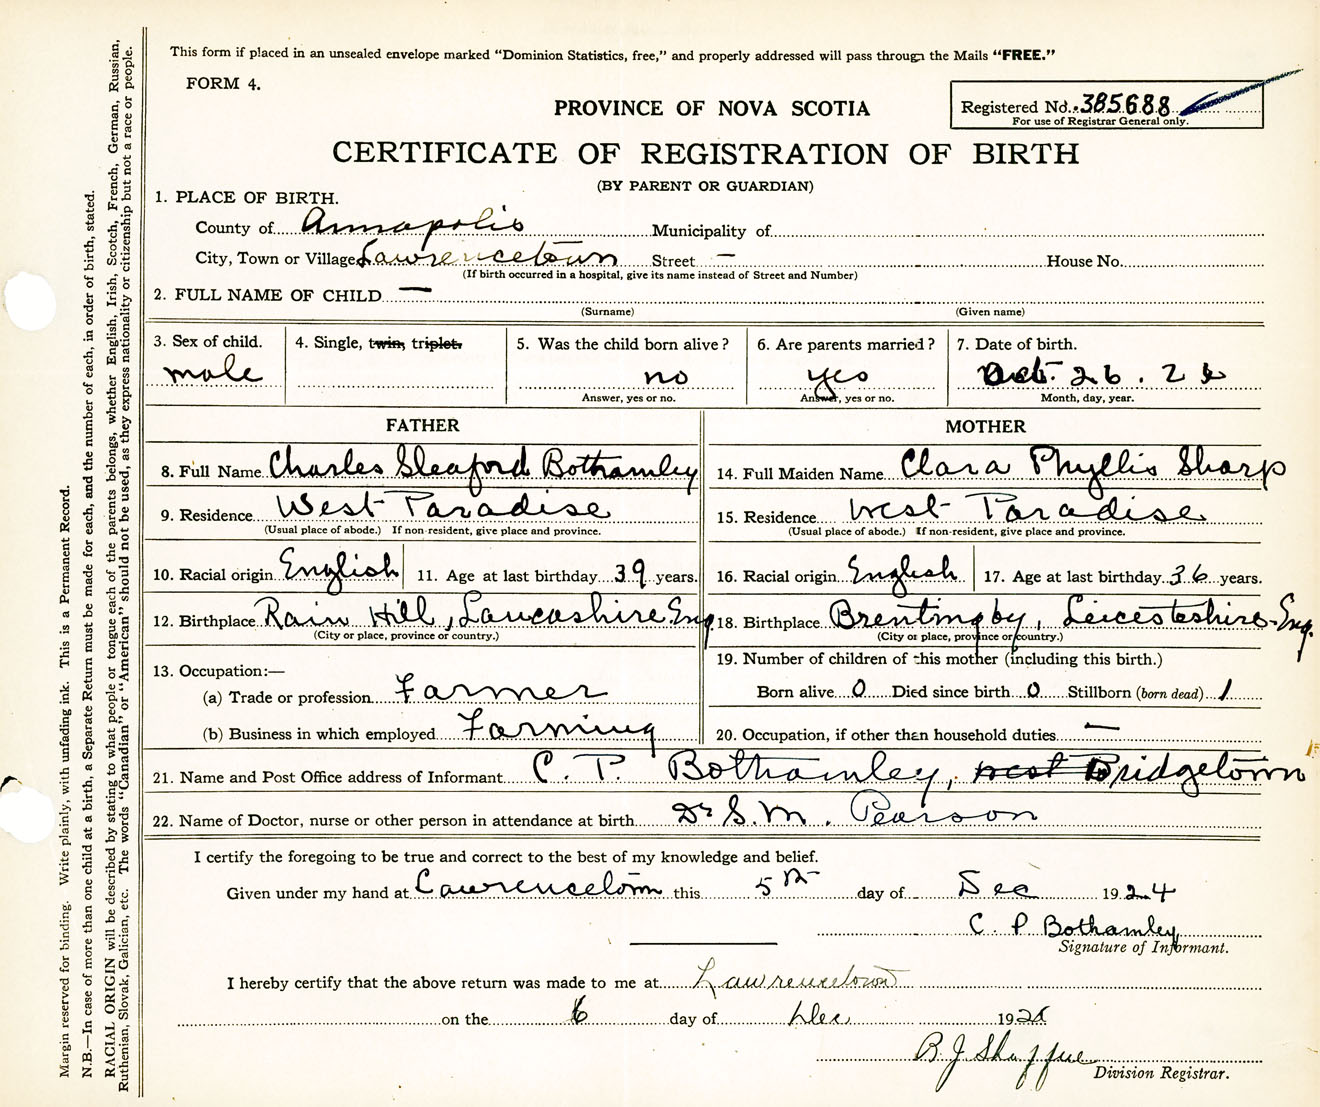 This form if placed in an unsealed envelope marked "Dominion Statistics, free," and properly addressed will pass through the Mails "FREE."
FORM 4.
PROVINCE OF NOVA SCOTIA
Registered No. 385688
For use of Registrar General only.
CERTIFICATE OF REGISTRATION OF BIRTH
(BY PARENT OR GUARDIAN)
1. PLACE OF BIRTH.
County of Annapolis Municipality of
City, Town or Village Lawrencetown Street — House No.
(If birth occurred in a hospital, give its name instead of Street and Number)
2. FULL NAME OF CHILD —
(Surname) (Given name)
3. Sex of child. 4. Single, twin, triplet. 5. Was the child born alive? 6. Are parents married? 7. Date of birth.
male no yes Oct. 26. 2
Answer, yes or no. Answer, yes or no. Month, day, year.
FATHER MOTHER
8. Full Name Charles Sleaford Bothamley 14. Full Maiden Name Clara Phyllis Sharp
9. Residence West Paradise 15. Residence West Paradise
(Usual place of abode.) If non-resident, give place and province. (Usual place of abode.) If non-resident, give place and province.
10. Racial origin English 11. Age at last birthday 39 years. 16. Racial origin English 17. Age at last birthday 36 years.
12. Birthplace Rain Hill, Lancashire Eng. 18. Birthplace Brentingby, Leicesteshire-Eng.
(City or place, province or country.) (City or place, province or country.)
13. Occupation:— 19. Number of children of this mother (including this birth.)
(a) Trade or profession Farmer Born alive 0 Died since birth 0 Stillborn (born dead) 1
(b) Business in which employed Farming 20. Occupation, if other than household duties —
21. Name and Post Office address of Informant C. P. Bothamley, West Bridgetown
22. Name of Doctor, nurse or other person in attendance at birth Dr S. M. Pearson
I certify the foregoing to be true and correct to the best of my knowledge and belief.
Given under my hand at Lawrencetown this 5th day of Dec 1924
C. P Bothamley
Signature of Informant.
I hereby certify that the above return was made to me at Lawrencetown
on the 6 day of Dec 192
B. J. Shaffne
Division Registrar.
Margin reserved for binding. Write plainly, with unfading ink. This is a Permanent Record.
N.B.—In case of more than one child at a birth, a Separate Return must be made for each, and the number of each, in order of birth, stated.
RACIAL ORIGIN will be described by stating to what people or tongue each of the parents belongs, whether English, Irish, Scotch, French, German, Russian,
Ruthenian, Slovak, Galician, etc. The words "Canadian" or "American" should not be used, as they express nationality or citizenship but not a race or people.